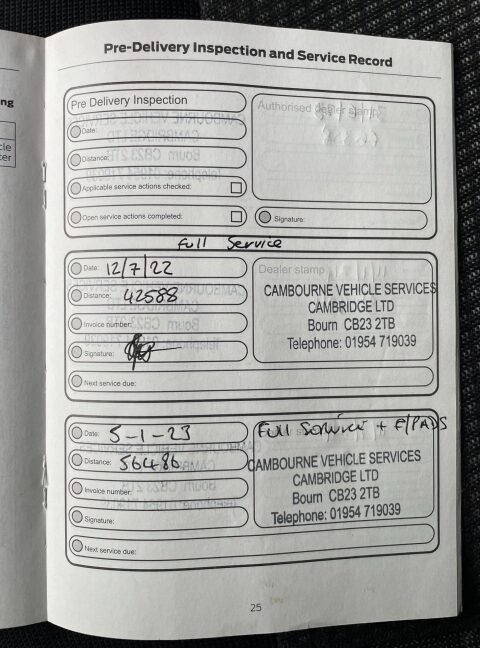 Pre-Delivery Inspection and Service Record
ng
cle
ter
Pre Delivery Inspection
Authorised dealer stamp
Date:
Distance:
Applicable service actions checked:
Open service actions completed:
Signature:
Full Service
Date: 12/7/22
Distance: 42588
Invoice number:
Signature:
Next service due:
Dealer stamp
CAMBOURNE VEHICLE SERVICES
CAMBRIDGE LTD
Bourn CB23 2TB
Telephone: 01954 719039
Date: 5-1-23
Distance: 56486
Invoice number:
Signature:
Next service due:
Full Service + F/PADS
CAMBOURNE VEHICLE SERVICES
CAMBRIDGE LTD
Bourn CB23 2TB
Telephone: 01954 719039
25